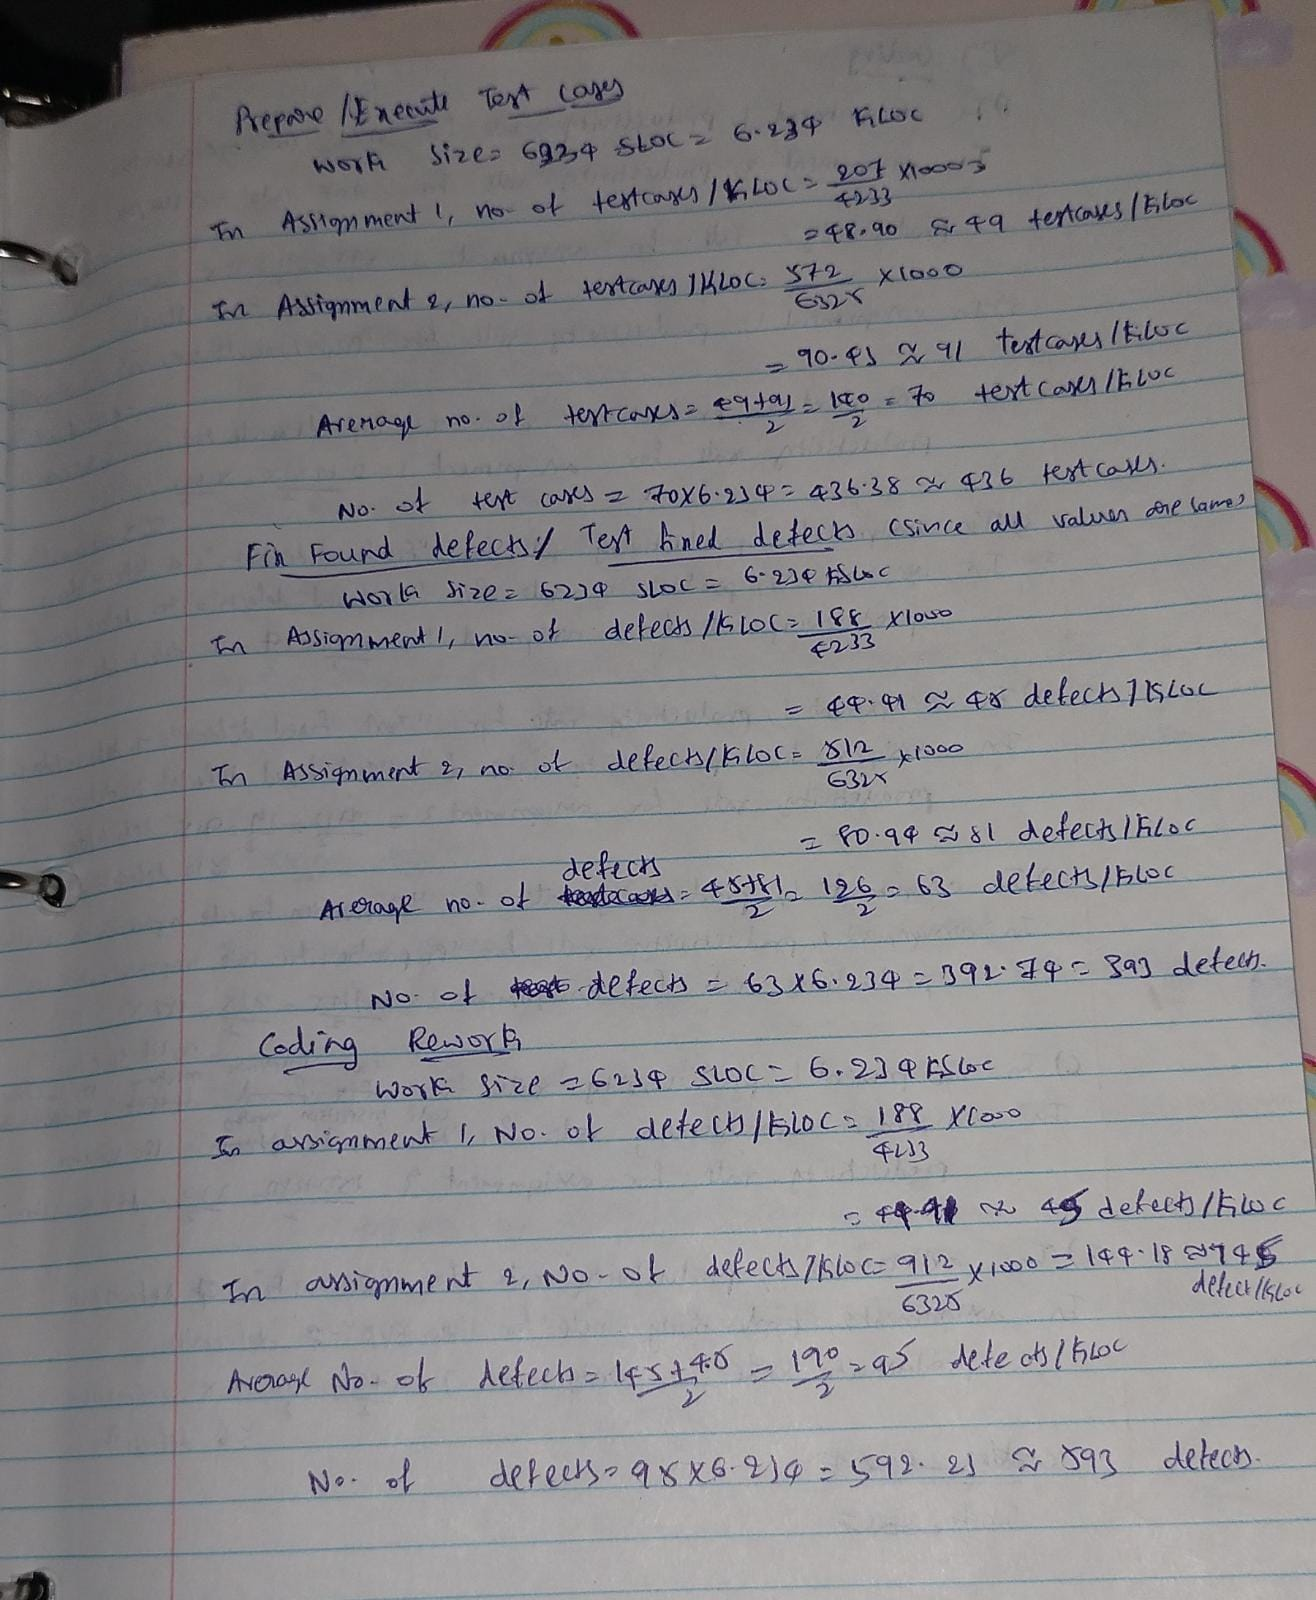 Prepare / Execute Test Cases
Work size = 6234 SLOC = 6.234 KLOC
In Assignment 1, no. of testcases / KLOC = 207/4233 x1000
= 48.90 ≈ 49 testcases / KLOC
In Assignment 2, no. of testcases / KLOC = 572/6325 x1000
= 90.43 ≈ 91 testcases / KLOC
Average no. of testcases = 49+91/2 = 140/2 = 70 test cases / KLOC
No. of test cases = 70x6.234 = 436.38 ≈ 436 test cases.
Fix Found defects / Test fixed defects (since all values are same)
Work size = 6234 SLOC = 6.234 KSLOC
In Assignment 1, no. of defects / KLOC = 188/4233 x1000
= 44.41 ≈ 45 defects / KSLOC
In Assignment 2, no. of defects / KLOC = 512/6325 x1000
= 80.94 ≈ 81 defects / KLOC
defects
Average no. of = 45+81/2 = 126/2 = 63 defects / KLOC
No. of defects = 63x6.234 = 392.74 = 393 defects.
Coding Rework
Work size = 6234 SLOC = 6.234 KSLOC
In assignment 1, No. of defects / KLOC = 188/4233 x1000
= 44.41 ≈ 45 defects / KLOC
In assignment 2, No. of defects / KSLOC = 912/6325 x1000 = 144.18 ≈ 145
defect / KSLOC
Average No. of defects = 145+45/2 = 190/2 = 95 defects / KLOC
No. of defects = 95x6.234 = 592.23 ≈ 593 defects.